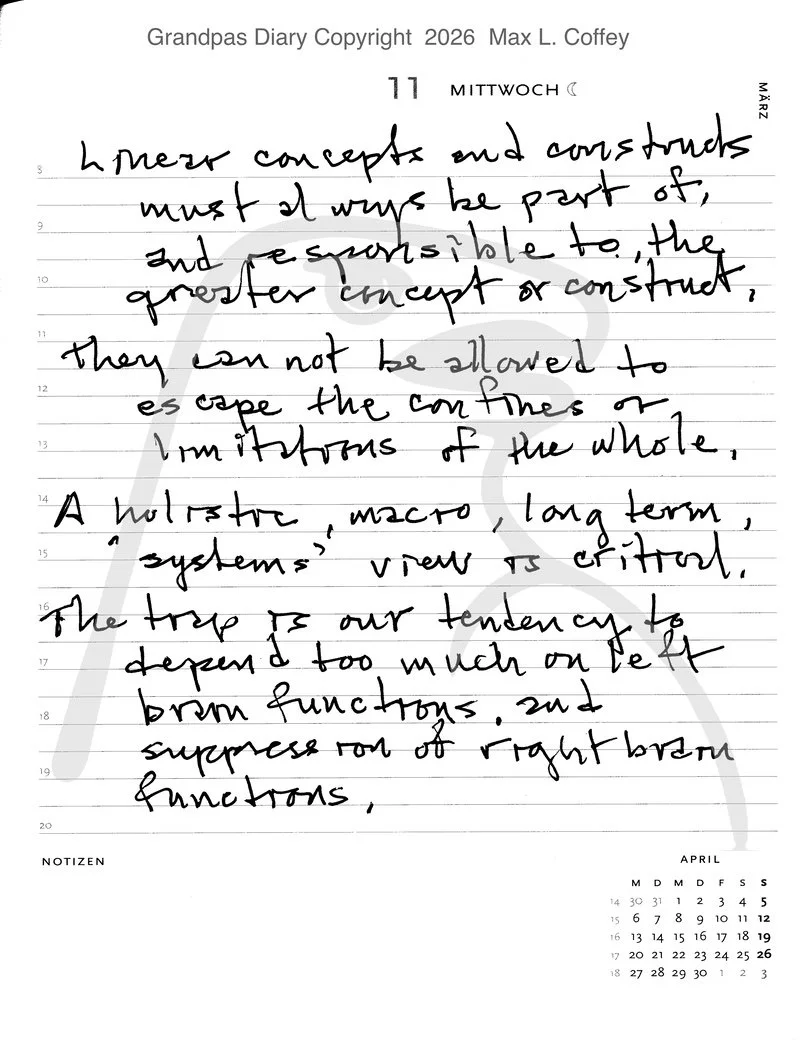 Grandpas Diary Copyright 2026 Max L. Coffey
11 MITTWOCH
MÄRZ
Linear concepts and constructs
must always be part of,
and responsible to, the
greater concept or construct.
They can not be allowed to
escape the confines or
limitations of the whole.
A holistic, macro, long term,
"systems" view is critical.
The trap is our tendency to
depend too much on left
brain functions, and
suppression of right brain
functions.
8
9
10
11
12
13
14
15
16
17
18
19
20
NOTIZEN
APRIL
M D M D F S S
14 30 31 1 2 3 4 5
15 6 7 8 9 10 11 12
16 13 14 15 16 17 18 19
17 20 21 22 23 24 25 26
18 27 28 29 30 1 2 3